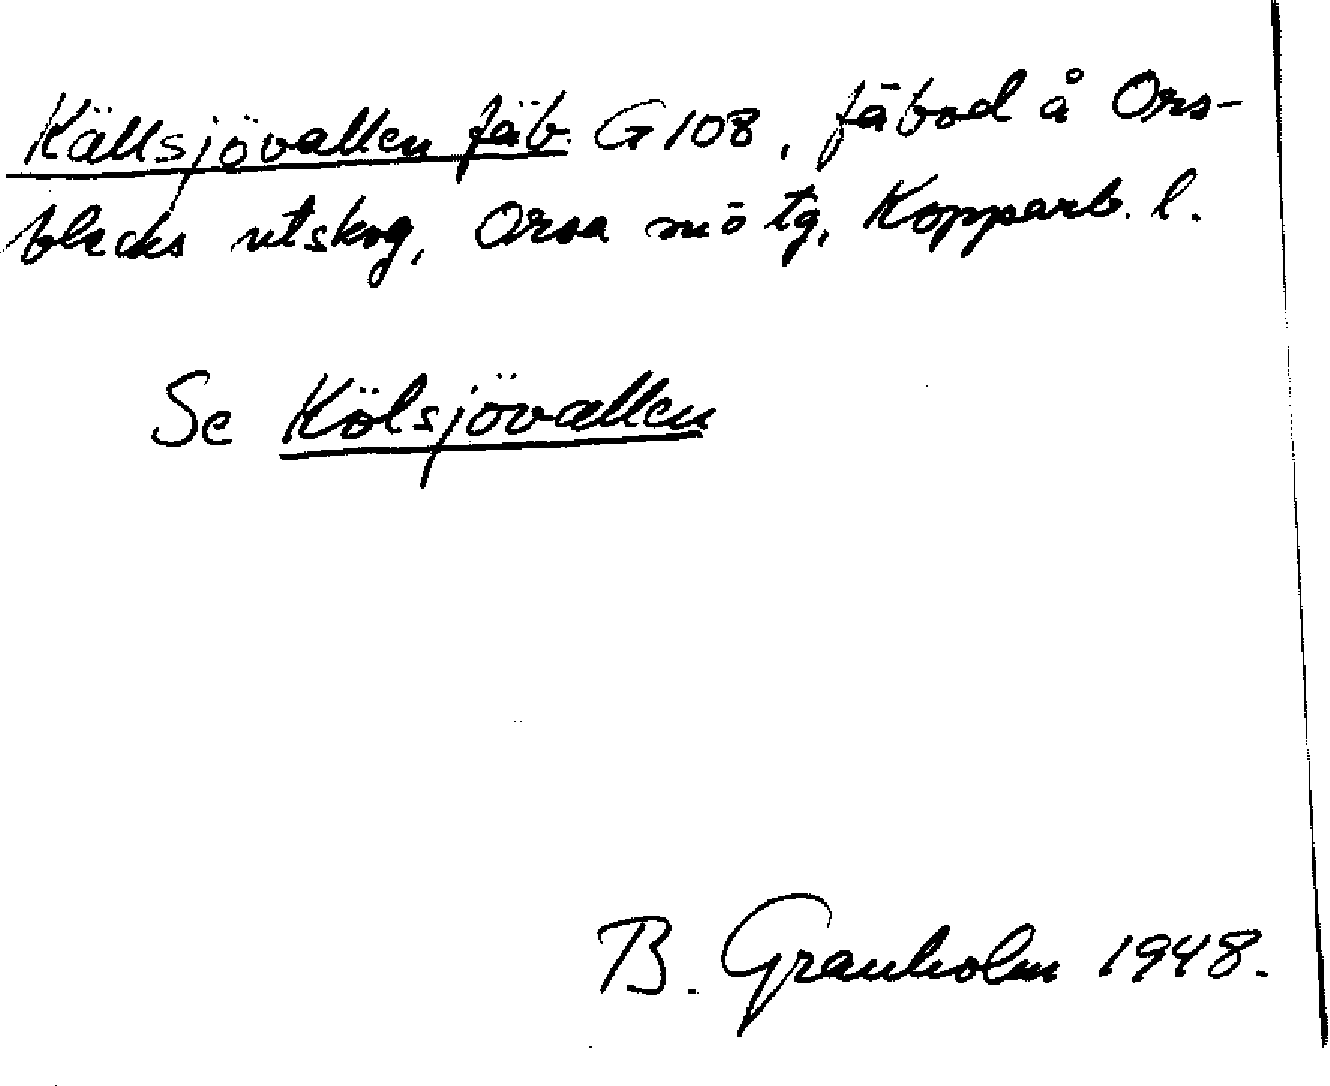 Källsjövallen fäb. G 108, fäbod å Ors-
blecks utskog, Orsa sn ö tg, Kopparb. l.
Se Kölsjövallen
B. Granholm 1948.